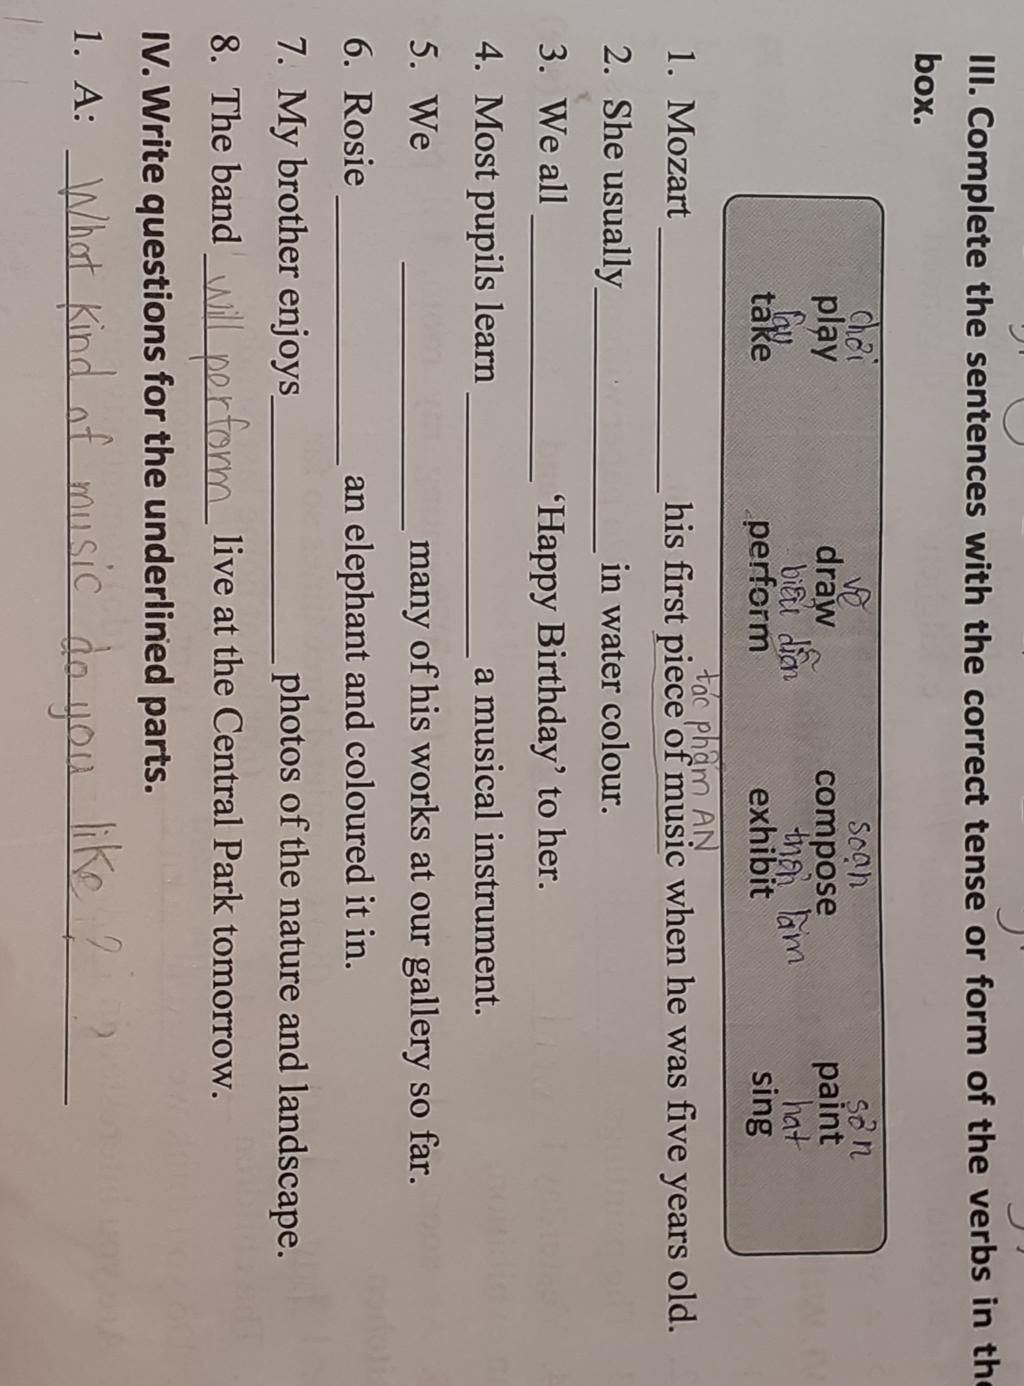 III. Complete the sentences with the correct tense or form of the verbs in the
box.
chơi vẽ soạn sơn
play draw compose paint
lấy biểu diễn triển lãm hát
take perform exhibit sing
tác phẩm AN
1. Mozart ____________ his first piece of music when he was five years old.
2. She usually ____________ in water colour.
3. We all ____________ ‘Happy Birthday’ to her.
4. Most pupils learn ____________ a musical instrument.
5. We ____________ many of his works at our gallery so far.
6. Rosie ____________ an elephant and coloured it in.
7. My brother enjoys ____________ photos of the nature and landscape.
8. The band will perform live at the Central Park tomorrow.
IV. Write questions for the underlined parts.
1. A: What kind of music do you like?